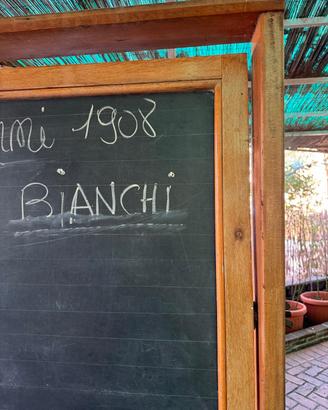 nni 1908
BiANCHi